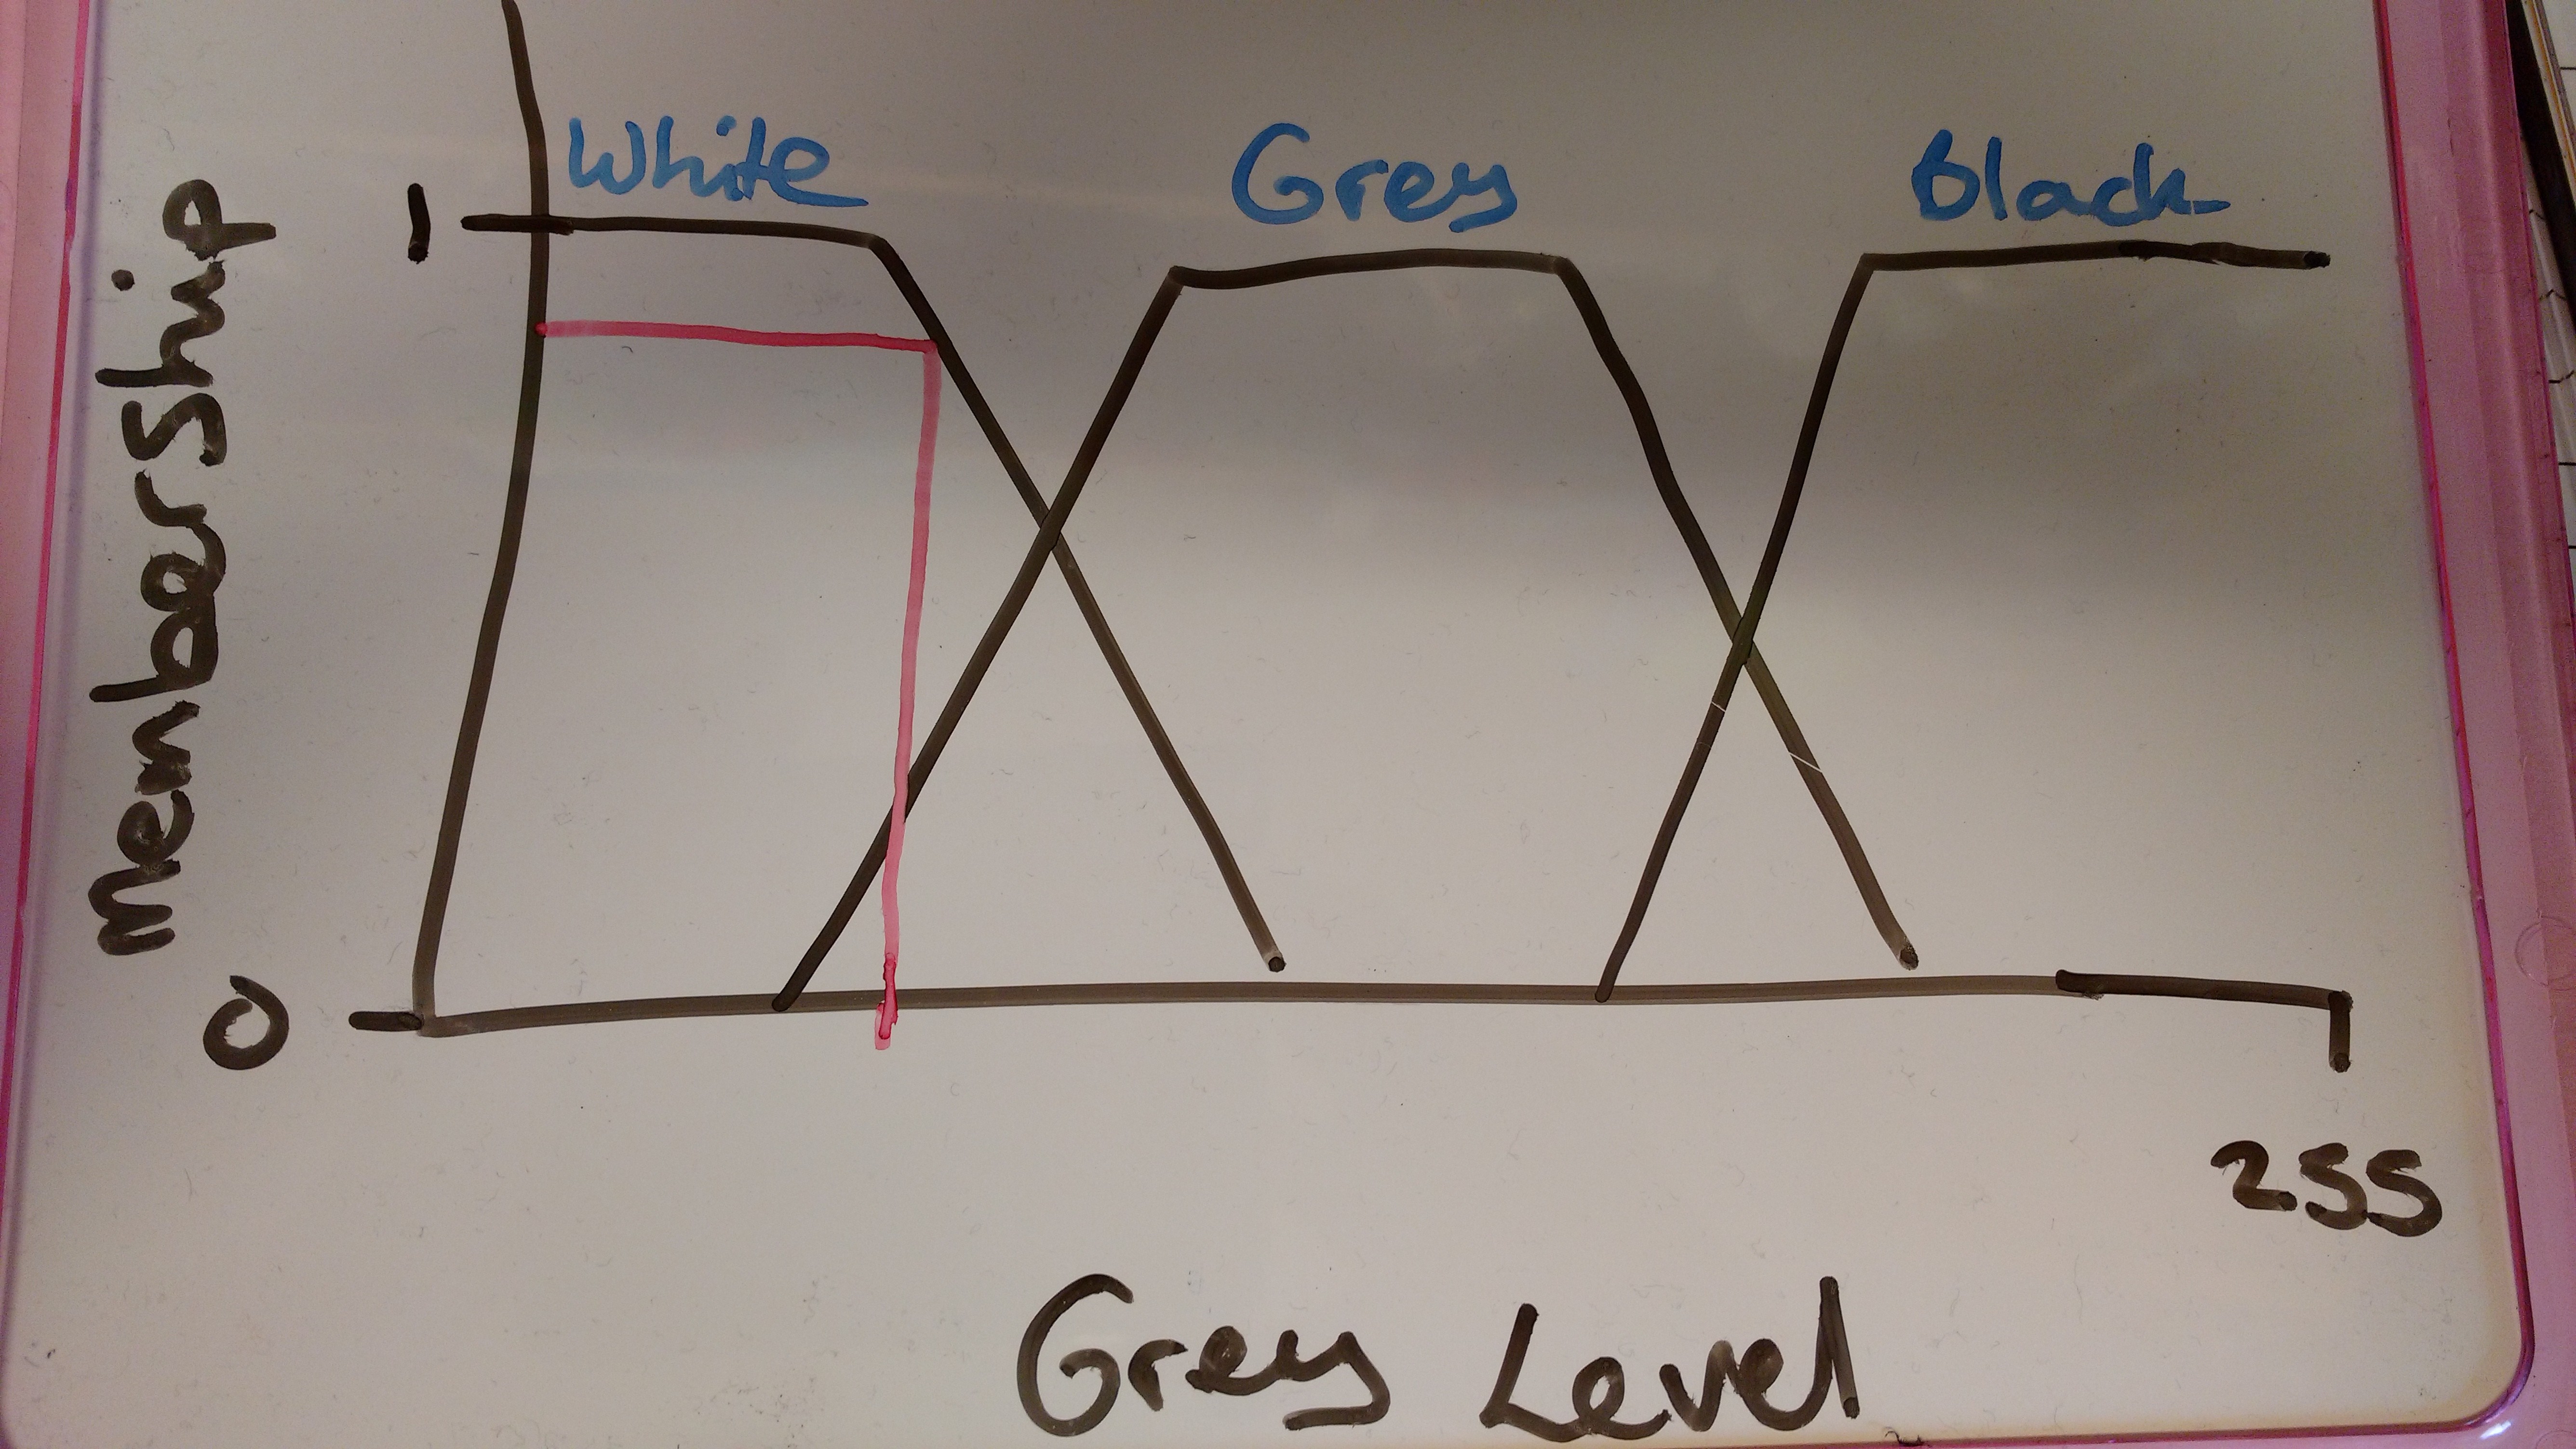 White Grey Black
1
membership
0
255
Grey Level